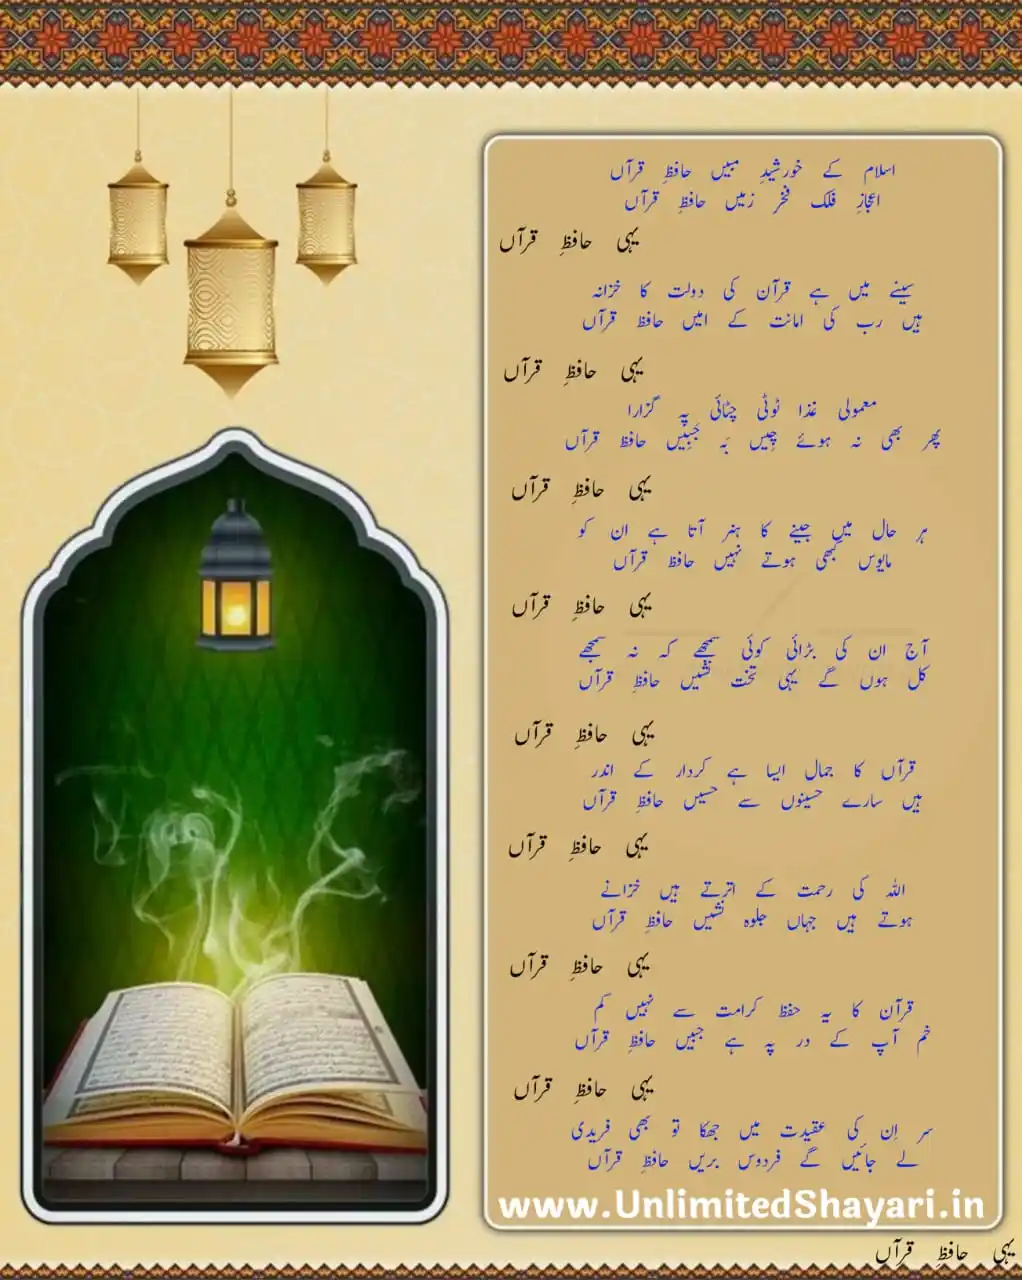 اسلام کے خورشیدِ مبیں حافظِ قرآں
اعجازِ فلک فخر زمیں حافظِ قرآں
یہی حافظِ قرآں
سینے میں ہے قرآن کی دولت کا خزانہ
ہیں رب کی امانت کے امیں حافظ قرآں
یہی حافظِ قرآں
معمولی غذا ٹوٹی چٹائی پہ گزارا
پھر بھی نہ ہوئے چیں بَہ جَبِیں حافظ قرآں
یہی حافظِ قرآں
ہر حال میں جینے کا ہنر آتا ہے ان کو
مایوس کبھی ہوتے نہیں حافظ قرآں
یہی حافظِ قرآں
آج ان کی بڑائی کوئی سمجھے کہ نہ سمجھے
کل ہوں گے یہی تخت نشیں حافظِ قرآں
یہی حافظِ قرآں
قرآں کا جمال ایسا ہے کردار کے اندر
ہیں سارے حسینوں سے حسیں حافظِ قرآں
یہی حافظِ قرآں
اللہ کی رحمت کے اترتے ہیں خزانے
ہوتے ہیں جہاں جلوہ نشیں حافظِ قرآں
یہی حافظِ قرآں
قرآن کا یہ حفظ کرامت سے نہیں کم
خم آپ کے در پہ ہے جبیں حافظِ قرآں
یہی حافظِ قرآں
سر اِن کی عقیدت میں جھکا تو بھی فریدی
لے جائیں گے فردوس بریں حافظِ قرآں
www.UnlimitedShayari.in
یہی حافظِ قرآں